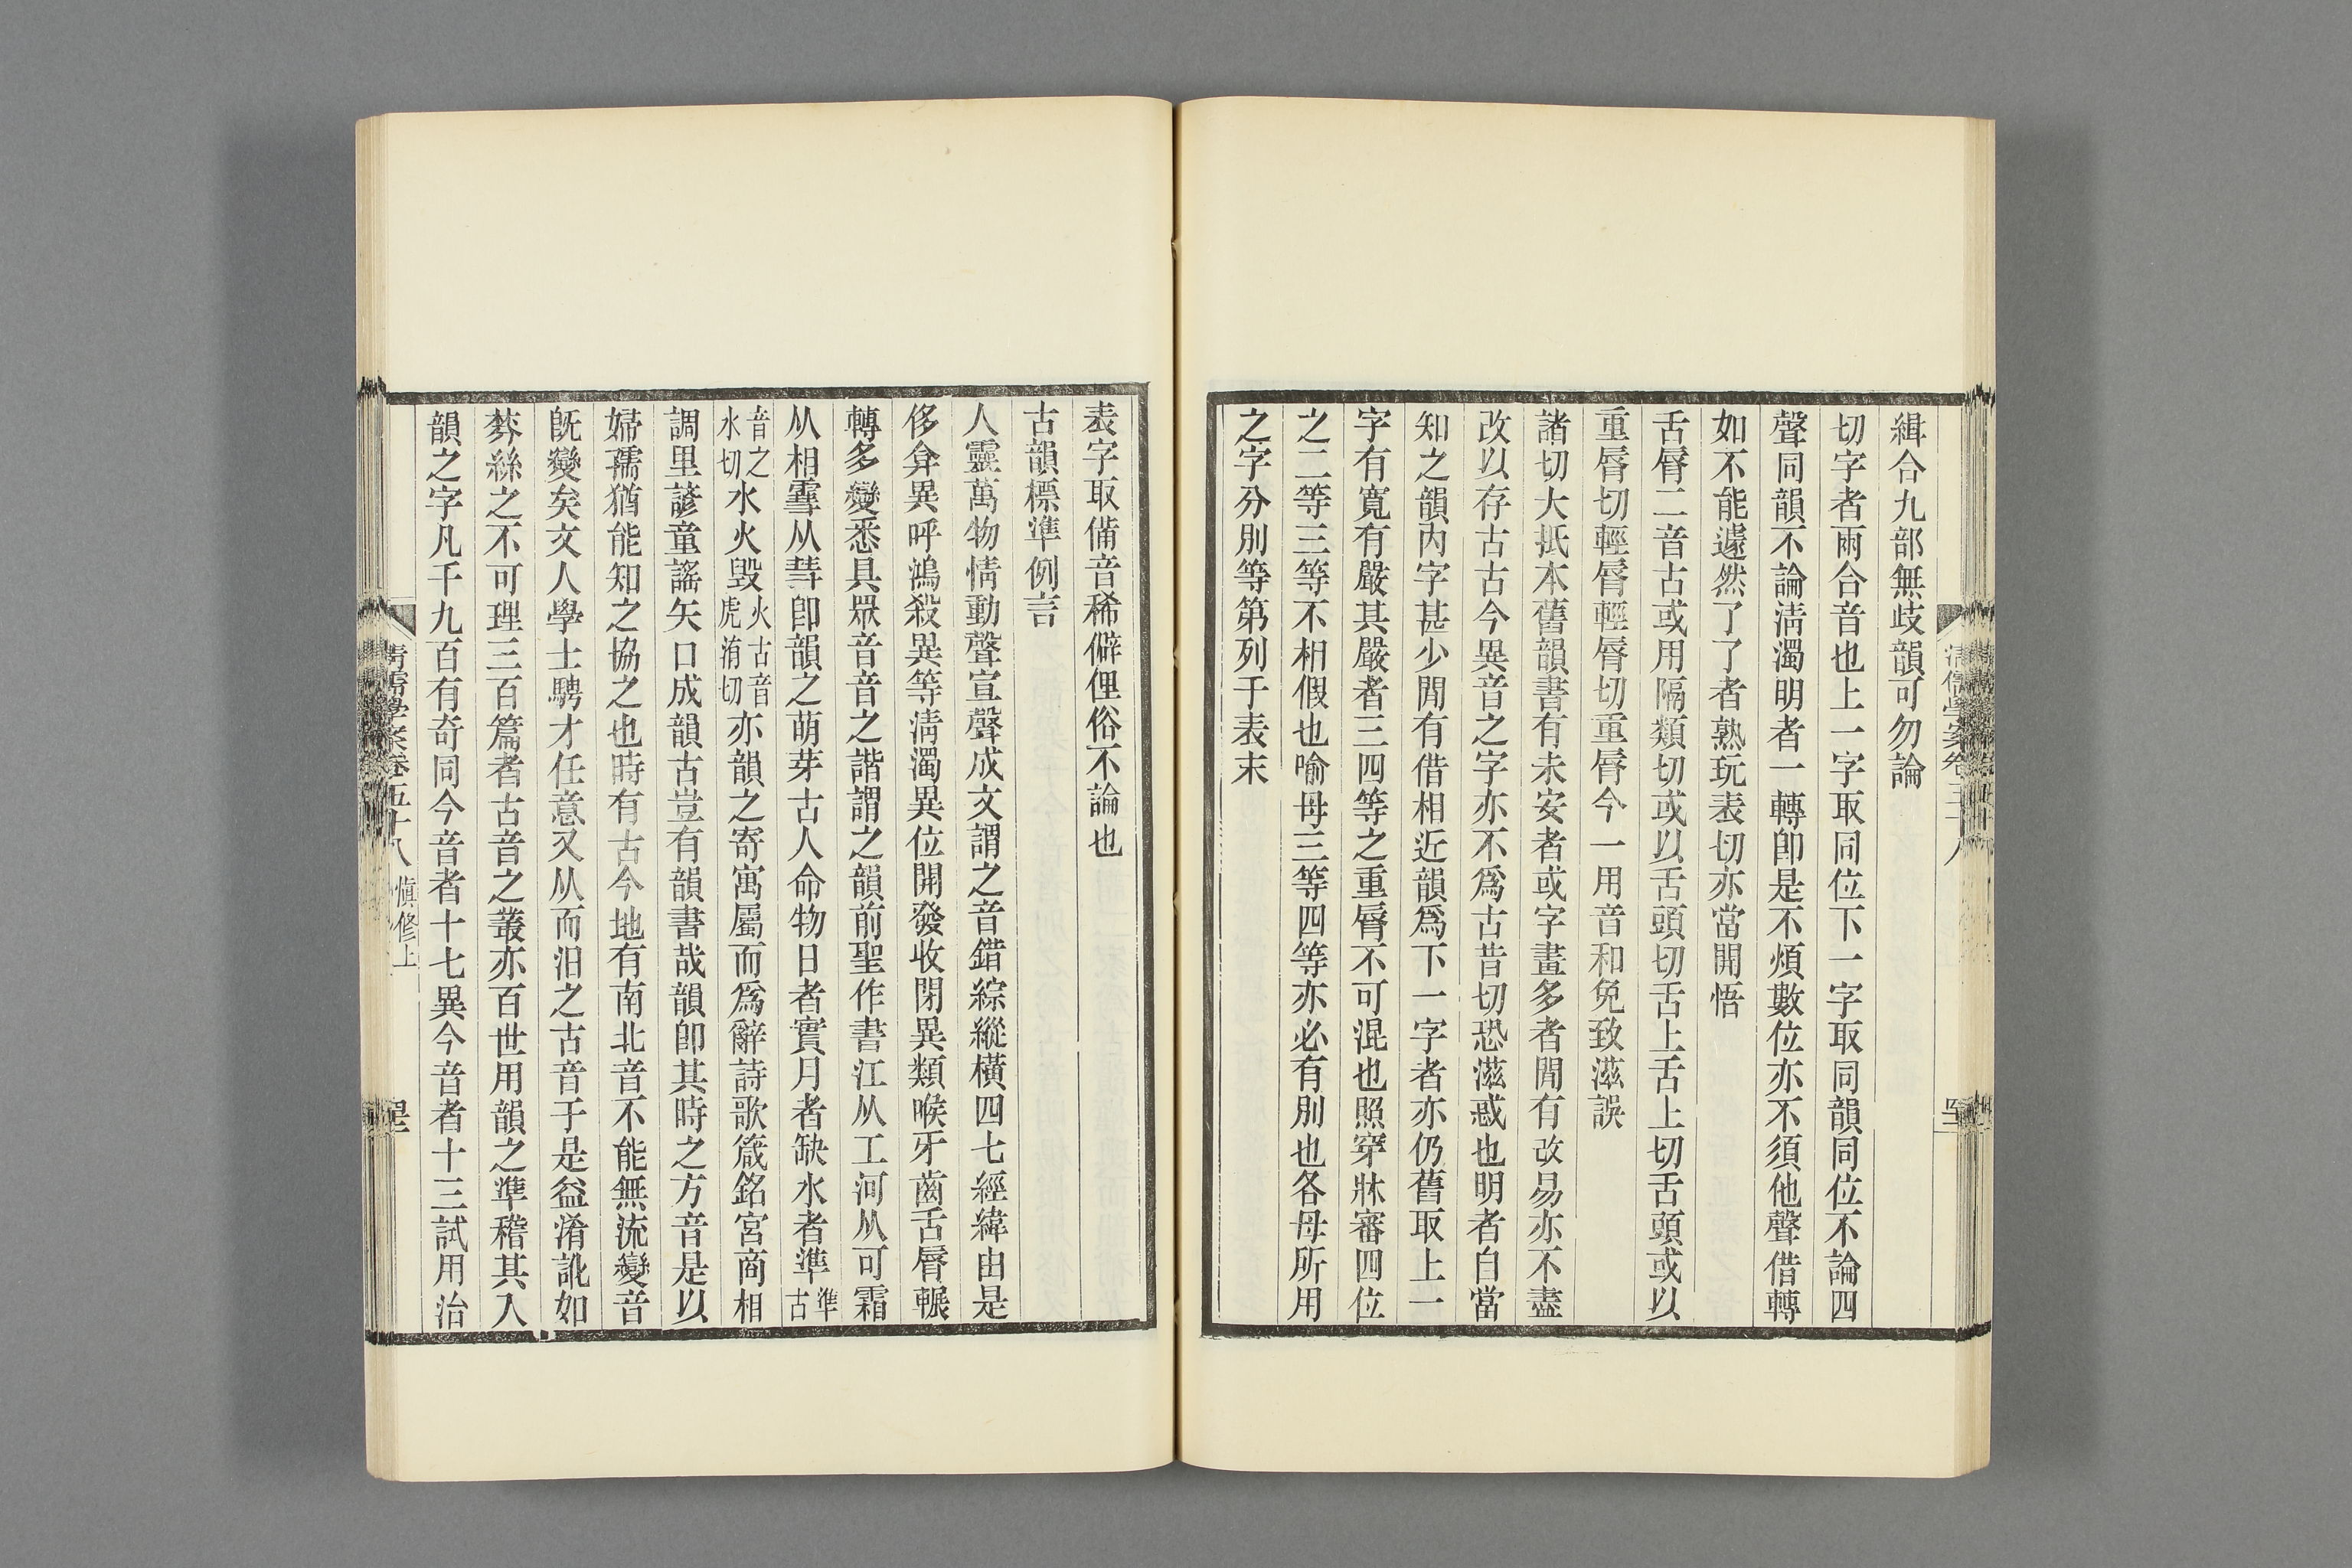 緝合九部無歧韻可勿論
切字者兩合音也上一字取同位下一字取同韻同位不論四
聲同韻不論淸濁明者一轉卽是不煩數位亦不須他聲借轉
如不能遽然了了者熟玩表切亦當開悟
舌脣二音古或用隔類切或以舌頭切舌上舌上切舌頭或以
重脣切輕脣輕脣切重脣今一用音和免致滋誤
諸切大抵本舊韻書有未安者或字畫多者閒有改易亦不盡
改以存古古今異音之字亦不爲古昔切恐滋惑也明者自當
知之韻內字甚少閒有借相近韻爲下一字者亦仍舊取上一
字有寬有嚴其嚴者三四等之重脣不可混也照穿牀審四位
之二等三等不相假也喻母三等四等亦必有別也各母所用
之字分別等第列于表末
表字取備音稀僻俚俗不論也
古韻標準例言
人靈萬物情動聲宣聲成文謂之音錯綜縱橫四七經緯由是
侈弇異呼鴻殺異等淸濁異位開發收閉異類喉牙齒舌脣輾
轉多變悉具眾音音之諧謂之韻前聖作書江从工河从可霜
从相䨮从彗卽韻之萌芽古人命物日者實月者缺水者準準古
音之水切水火毀火古音虎洧切亦韻之寄寓屬而爲辭詩歌箴銘宮商相
調里諺童謠矢口成韻古豈有韻書哉韻卽其時之方音是以
婦孺猶能知之協之也時有古今地有南北音不能無流變音
旣變矣文人學士騁才任意又从而汨之古音于是益淆訛如
棼絲之不可理三百篇者古音之叢亦百世用韻之準稽其入
韻之字凡千九百有奇同今音者十七異今音者十三試用治
淸儒學案卷五十八 愼修上